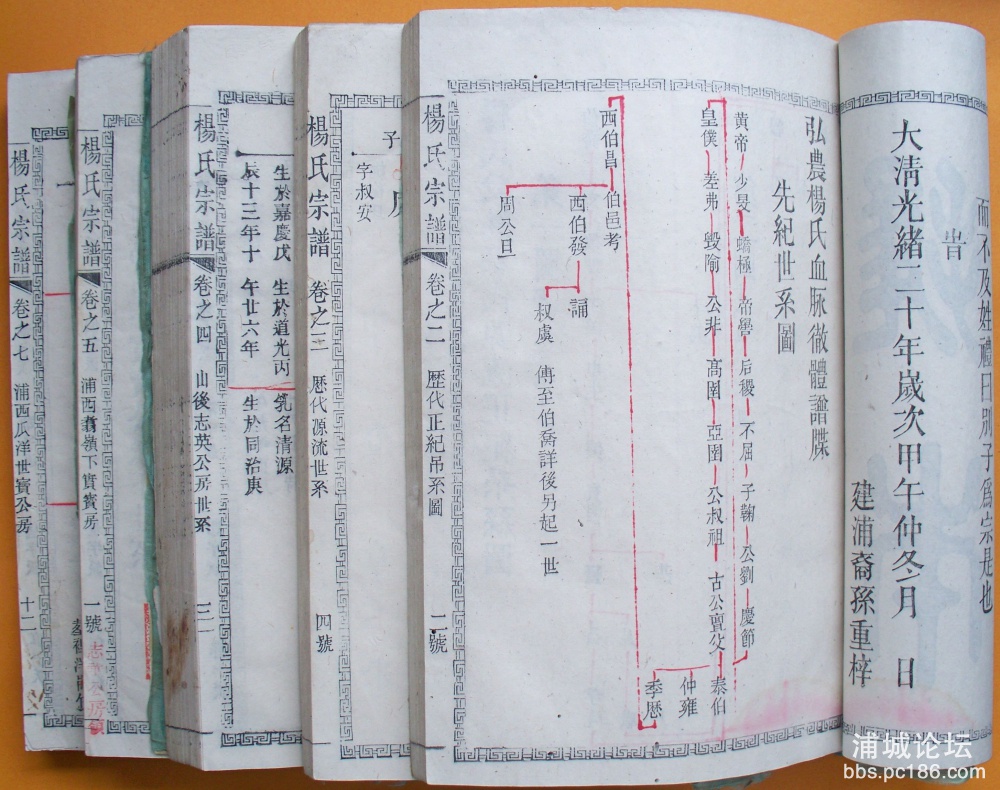 而不及姓禮曰別子爲宗是也
旹
大清光緒二十年歲次甲午仲冬月 日
建浦裔孫重梓
弘農楊氏血脉徹體譜牒
先紀世系圖
黃帝 少旻 蟜極 帝嚳 后稷 不屈 子鞠 公劉 慶節
皇僕 差弗 毀隃 公非 高圉 亞圉 公叔祖 古公亶父 泰伯
仲雍
季歷
西伯昌 伯邑考
西伯發 誦
叔虞 傳至伯喬詳後另起一世
周公旦
楊氏宗譜 卷之二 歷代正紀吊系圖 二號
子
字叔安
楊氏宗譜 卷之三 歷代源流世系 四號
乳名清源
生於道光丙
午廿六年
生於同治庚
生於嘉慶戊
辰十三年十
楊氏宗譜 卷之四 山後志英公房世系 三
楊氏宗譜 卷之五 浦西翥嶺下實賓房 一號
楊氏宗譜 卷之七 浦西瓜洋世賓公房 十二
浦城论坛
bbs.pc186.com